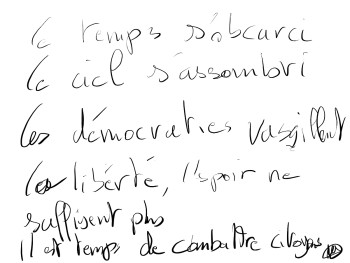 le temps s'obcurci
le ciel s'assombri
les démocraties vasgillent
la liberté, l'espoir ne
suffisent plus
il est temps de combattre citoyens